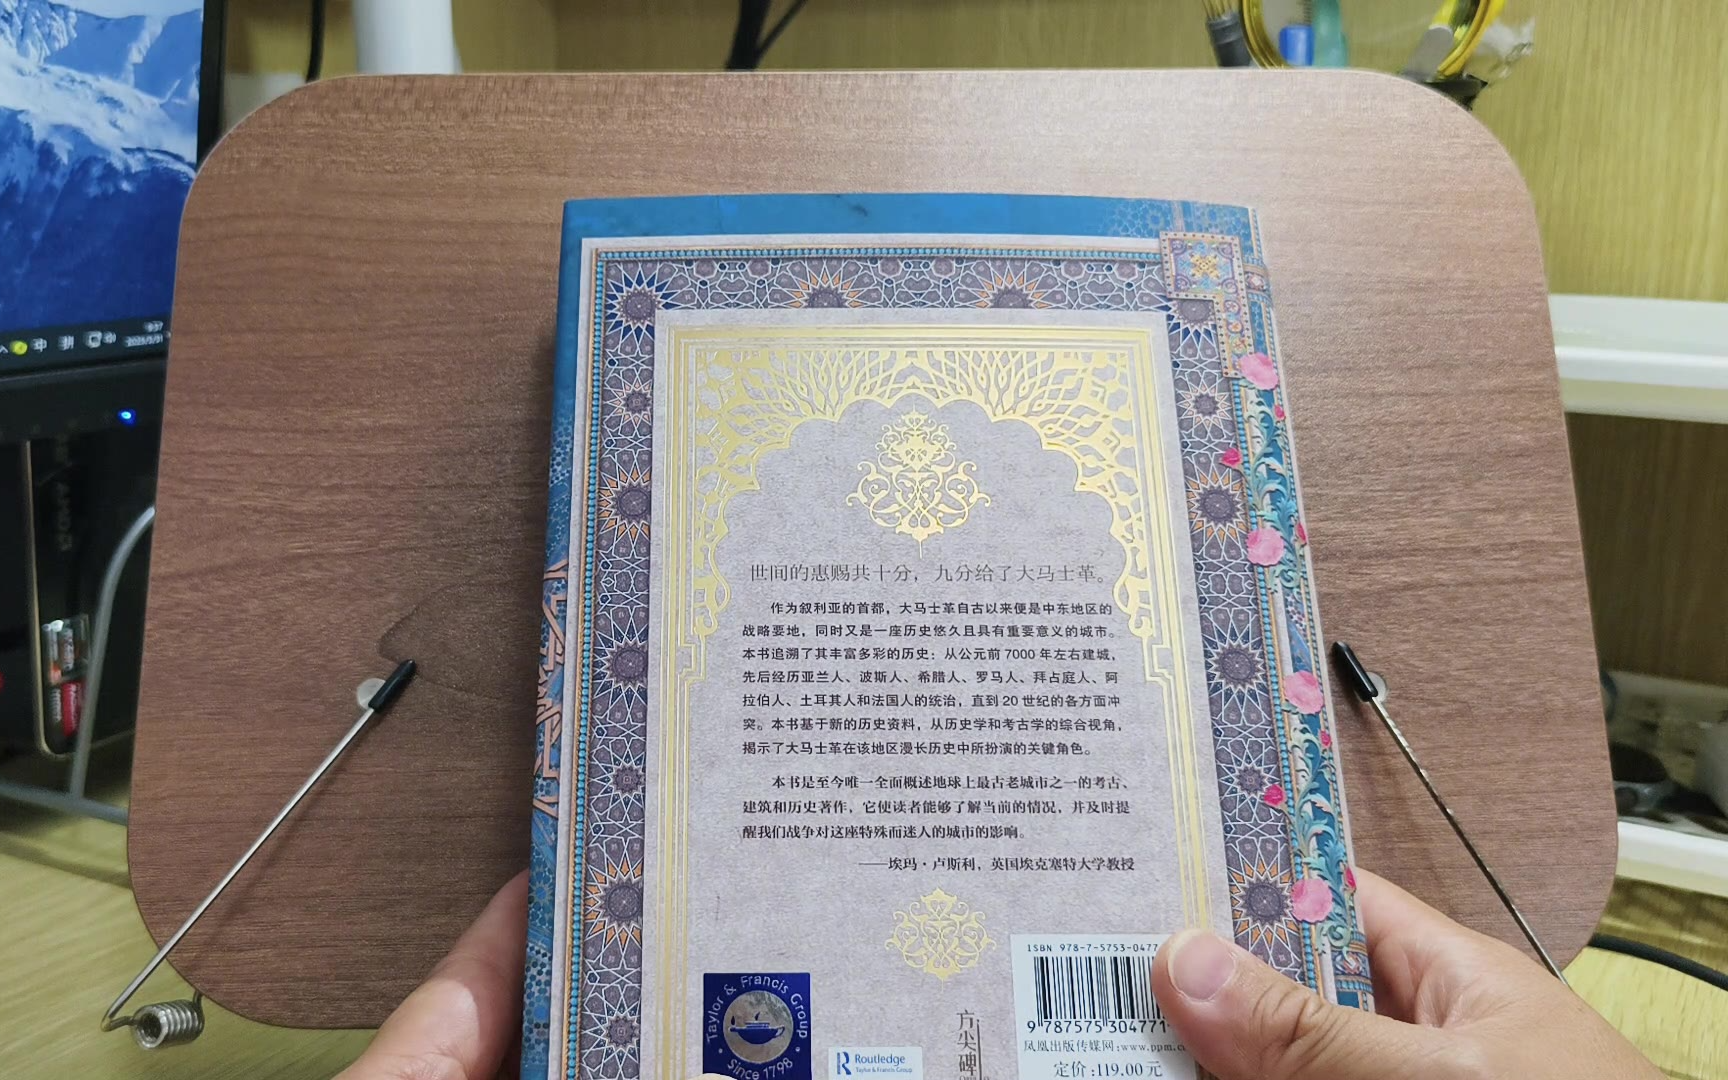 世间的惠赐共十分，九分给了大马士革。
作为叙利亚的首都，大马士革自古以来便是中东地区的
战略要地，同时又是一座历史悠久且具有重要意义的城市。
本书追溯了其丰富多彩的历史：从公元前7000年左右建城，
先后经历亚兰人、波斯人、希腊人、罗马人、拜占庭人、阿
拉伯人、土耳其人和法国人的统治，直到20世纪的各方面冲
突。本书基于新的历史资料，从历史学和考古学的综合视角，
揭示了大马士革在该地区漫长历史中所扮演的关键角色。
本书是至今唯一全面概述地球上最古老城市之一的考古、
建筑和历史著作，它使读者能够了解当前的情况，并及时提
醒我们战争对这座特殊而迷人的城市的影响。
——埃玛·卢斯利，英国埃克塞特大学教授
Taylor & Francis Group
Since 1798
Routledge
Taylor & Francis Group
方尖碑
ISBN 978-7-5753-0477
9 787575 304771
凤凰出版传媒网:www.ppm.c
定价:119.00元